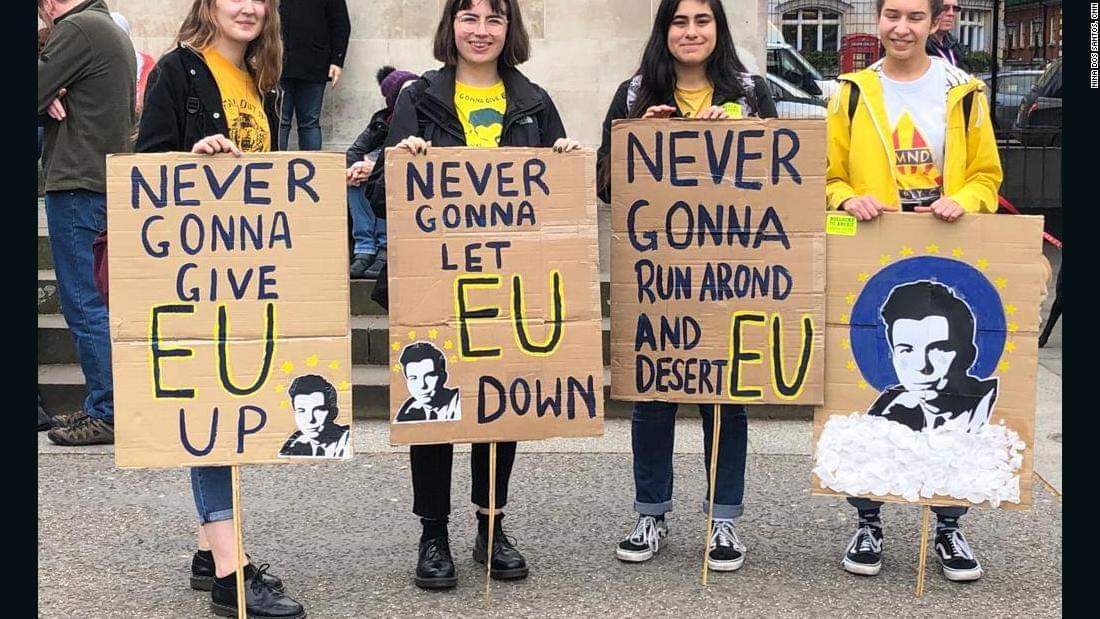 NEVER
GONNA
GIVE
EU
UP
NEVER
GONNA
LET
EU
DOWN
NEVER
GONNA
RUN AROND
AND
DESERT EU
GONNA GIVE
MND
NINA DOS SANTOS, CNN